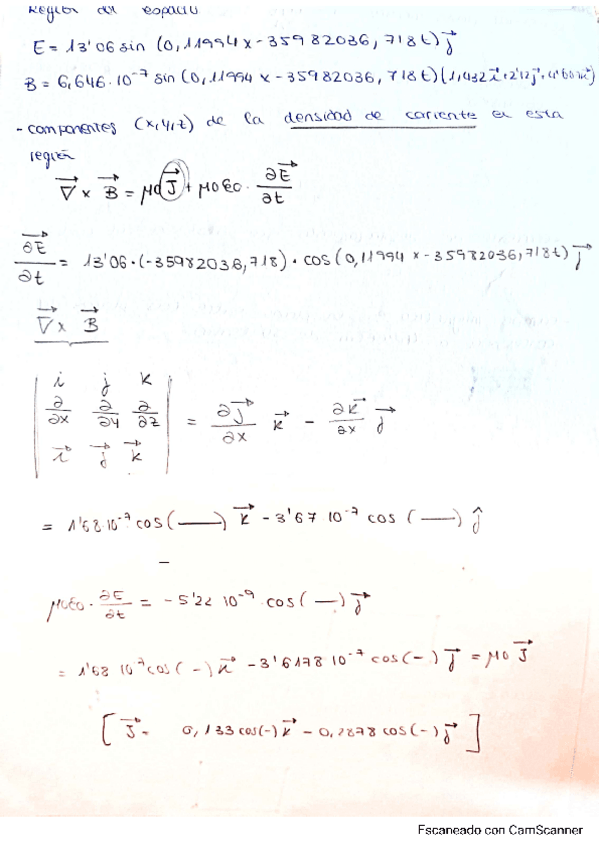 región del espacio
E = 13'06 sin (0,11994 x - 35982036,718t) j⃗
B = 6,646·10⁻⁷ sin (0,11994 x - 35982036,718t) (1,432 i⃗ + 2'12 j⃗ + 4'607 k⃗)
- componentes (x,y,z) de la densidad de corriente en esta
región
∇⃗ x B⃗ = μ0 J⃗ + μ0ε0 · ∂E⃗/∂t
∂E⃗/∂t = 13'06 · (-35982036,718) · cos (0,11994 x - 35982036,718t) j⃗
∇⃗ x B⃗
i j k
∂/∂x ∂/∂y ∂/∂z = ∂j⃗/∂x k⃗ - ∂k⃗/∂x j⃗
i⃗ j⃗ k⃗
= 1'68·10⁻⁷ cos (——) k⃗ - 3'67 10⁻⁷ cos (—) ĵ
—
μ0ε0 · ∂E/∂t = - 5'22 10⁻⁹ cos (—) j⃗
= 1'68 10⁻⁷ cos (-) k⃗ - 3'6178 10⁻⁷ cos (-) j⃗ = μ0 J⃗
[ J⃗ = 0,133 cos(-) k⃗ - 0,2878 cos (-) j⃗ ]
Escaneado con CamScanner